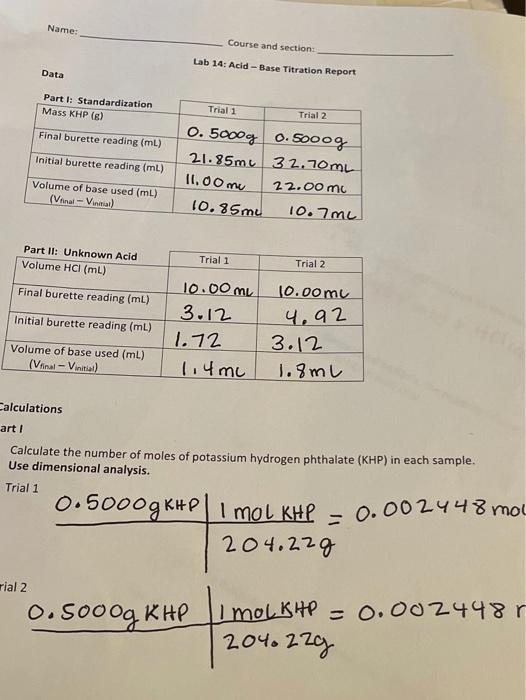 Name:
Course and section:
Lab 14: Acid – Base Titration Report
Data
Part I: Standardization Trial 1 Trial 2
Mass KHP (g) 0.5000g 0.5000g
Final burette reading (mL) 21.85mL 32.70mL
Initial burette reading (mL) 11.00mL 22.00mL
Volume of base used (mL) 10.85mL 10.7mL
(Vfinal – Vinitial)
Part II: Unknown Acid Trial 1 Trial 2
Volume HCl (mL) 10.00mL 10.00mL
Final burette reading (mL) 3.12 4.92
Initial burette reading (mL) 1.72 3.12
Volume of base used (mL) 1.4mL 1.8mL
(Vfinal – Vinitial)
Calculations
art I
Calculate the number of moles of potassium hydrogen phthalate (KHP) in each sample.
Use dimensional analysis.
Trial 1
0.5000g KHP 1 mol KHP = 0.002448 mol
204.22g
rial 2
0.5000g KHP 1 mol KHP = 0.002448
204.22g